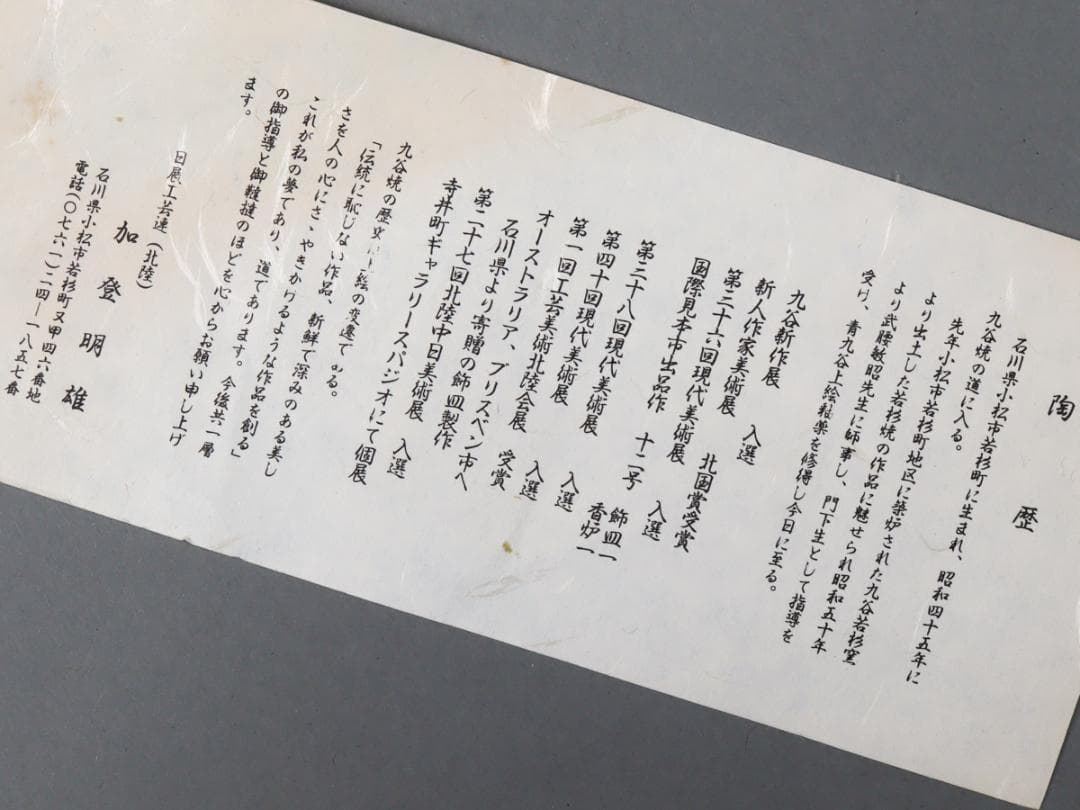 陶歴
石川県小松市若杉町に生まれ、昭和四十五年に
九谷焼の道に入る。
先年小松市若杉町地区に築炉された九谷若杉窯
より出土した若杉焼の作品に魅せられ昭和五十年
より武腰敏昭先生に師事し、門下生として指導を
受け、青九谷上絵釉薬を修得し今日に至る。
九谷新作展
新人作家美術展 入選
第三十六回現代美術展 北国賞受賞
国際見本市出品作 十二号 飾皿一 香炉一
第三十八回現代美術展 入選
第四十回現代美術展 入選
第一回工芸美術北陸会展 入選
オーストラリア、ブリスベン市へ
石川県より寄贈の飾皿製作 受賞
第二十七回北陸中日美術展 入選
寺井町ギャラリースパジオにて個展
九谷焼の歴史 絵の変遷である。
「伝統に恥じない作品、新鮮で深みのある美し
さを人の心にさゝやきかけるような作品を創る」
これが私の夢であり、道であります。今後共一層
の御指導と御鞭撻のほどを心からお願い申し上げ
ます。
日展工芸連(北陸)
加登明雄
石川県小松市若杉町又甲四六番地
電話(〇七六一)二四―一八五七番